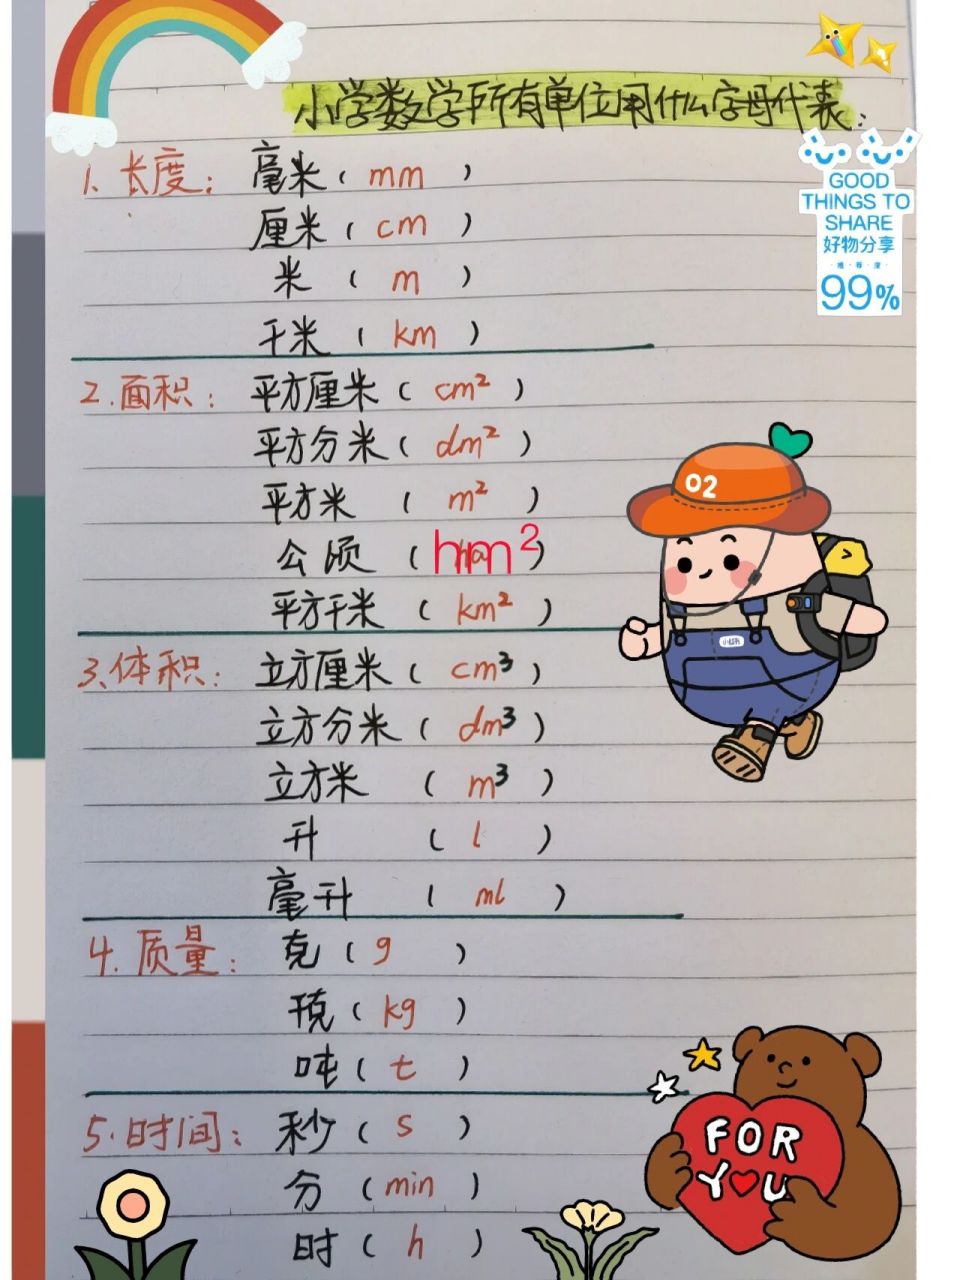 小学数学所有单位用什么字母代表:
1. 长度: 毫米 ( mm )
厘米 ( cm )
米 ( m )
千米 ( km )
2. 面积: 平方厘米 ( cm² )
平方分米 ( dm² )
平方米 ( m² )
公顷 ( hm² )
平方千米 ( km² )
3. 体积: 立方厘米 ( cm³ )
立方分米 ( dm³ )
立方米 ( m³ )
升 ( l )
毫升 ( ml )
4. 质量: 克 ( g )
千克 ( kg )
吨 ( t )
5. 时间: 秒 ( s )
分 ( min )
时 ( h )
GOOD
THINGS TO
SHARE
好物分享
·推·荐·度·
99%
02
小红书
FOR
YOU